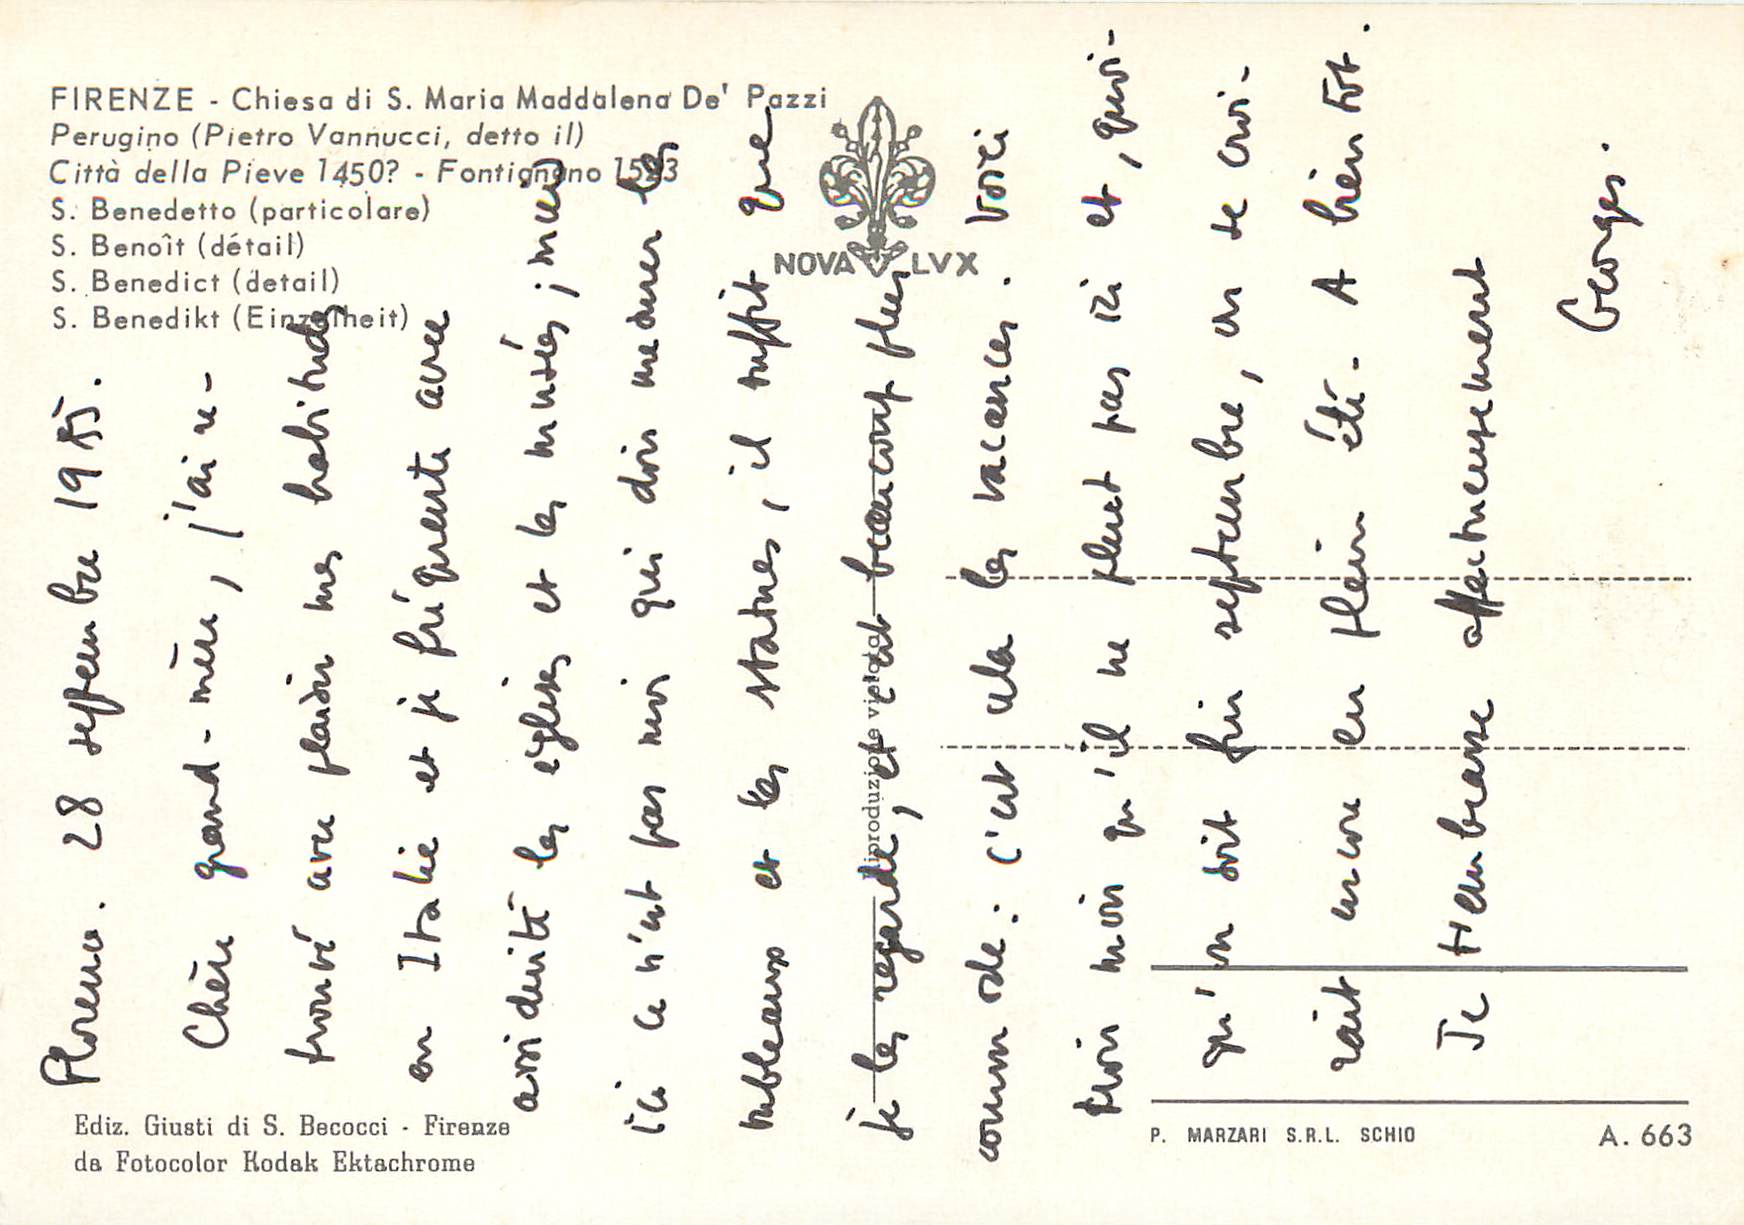 FIRENZE - Chiesa di S. Maria Maddalena De' Pazzi
Perugino (Pietro Vannucci, detto il)
Città della Pieve 1450? - Fontignano 1523
S. Benedetto (particolare)
S. Benoît (détail)
S. Benedict (detail)
S. Benedikt (Einzelheit)
NOVA LVX
Florence. 28 septembre 1985.
Chère grand-mère, j'ai re-
trouvé avec plaisir mes habitudes
en Italie et je fréquente avec
assiduité les églises et les musées ; mais
ici ce n'est pas moi qui dois mesurer les
tableaux et les statues, il suffit que
je les regarde, et c'est beaucoup plus
commode : c'est cela les vacances. Voici
trois mois qu'il ne pleut pas ici et, quoi-
qu'on soit fin septembre, on se croi-
rait encore en plein été. A bientôt.
Je t'embrasse affectueusement
Georges.
Riproduzione vietata
Ediz. Giusti di S. Becocci - Firenze
da Fotocolor Kodak Ektachrome
P. MARZARI S.R.L. SCHIO
A. 663